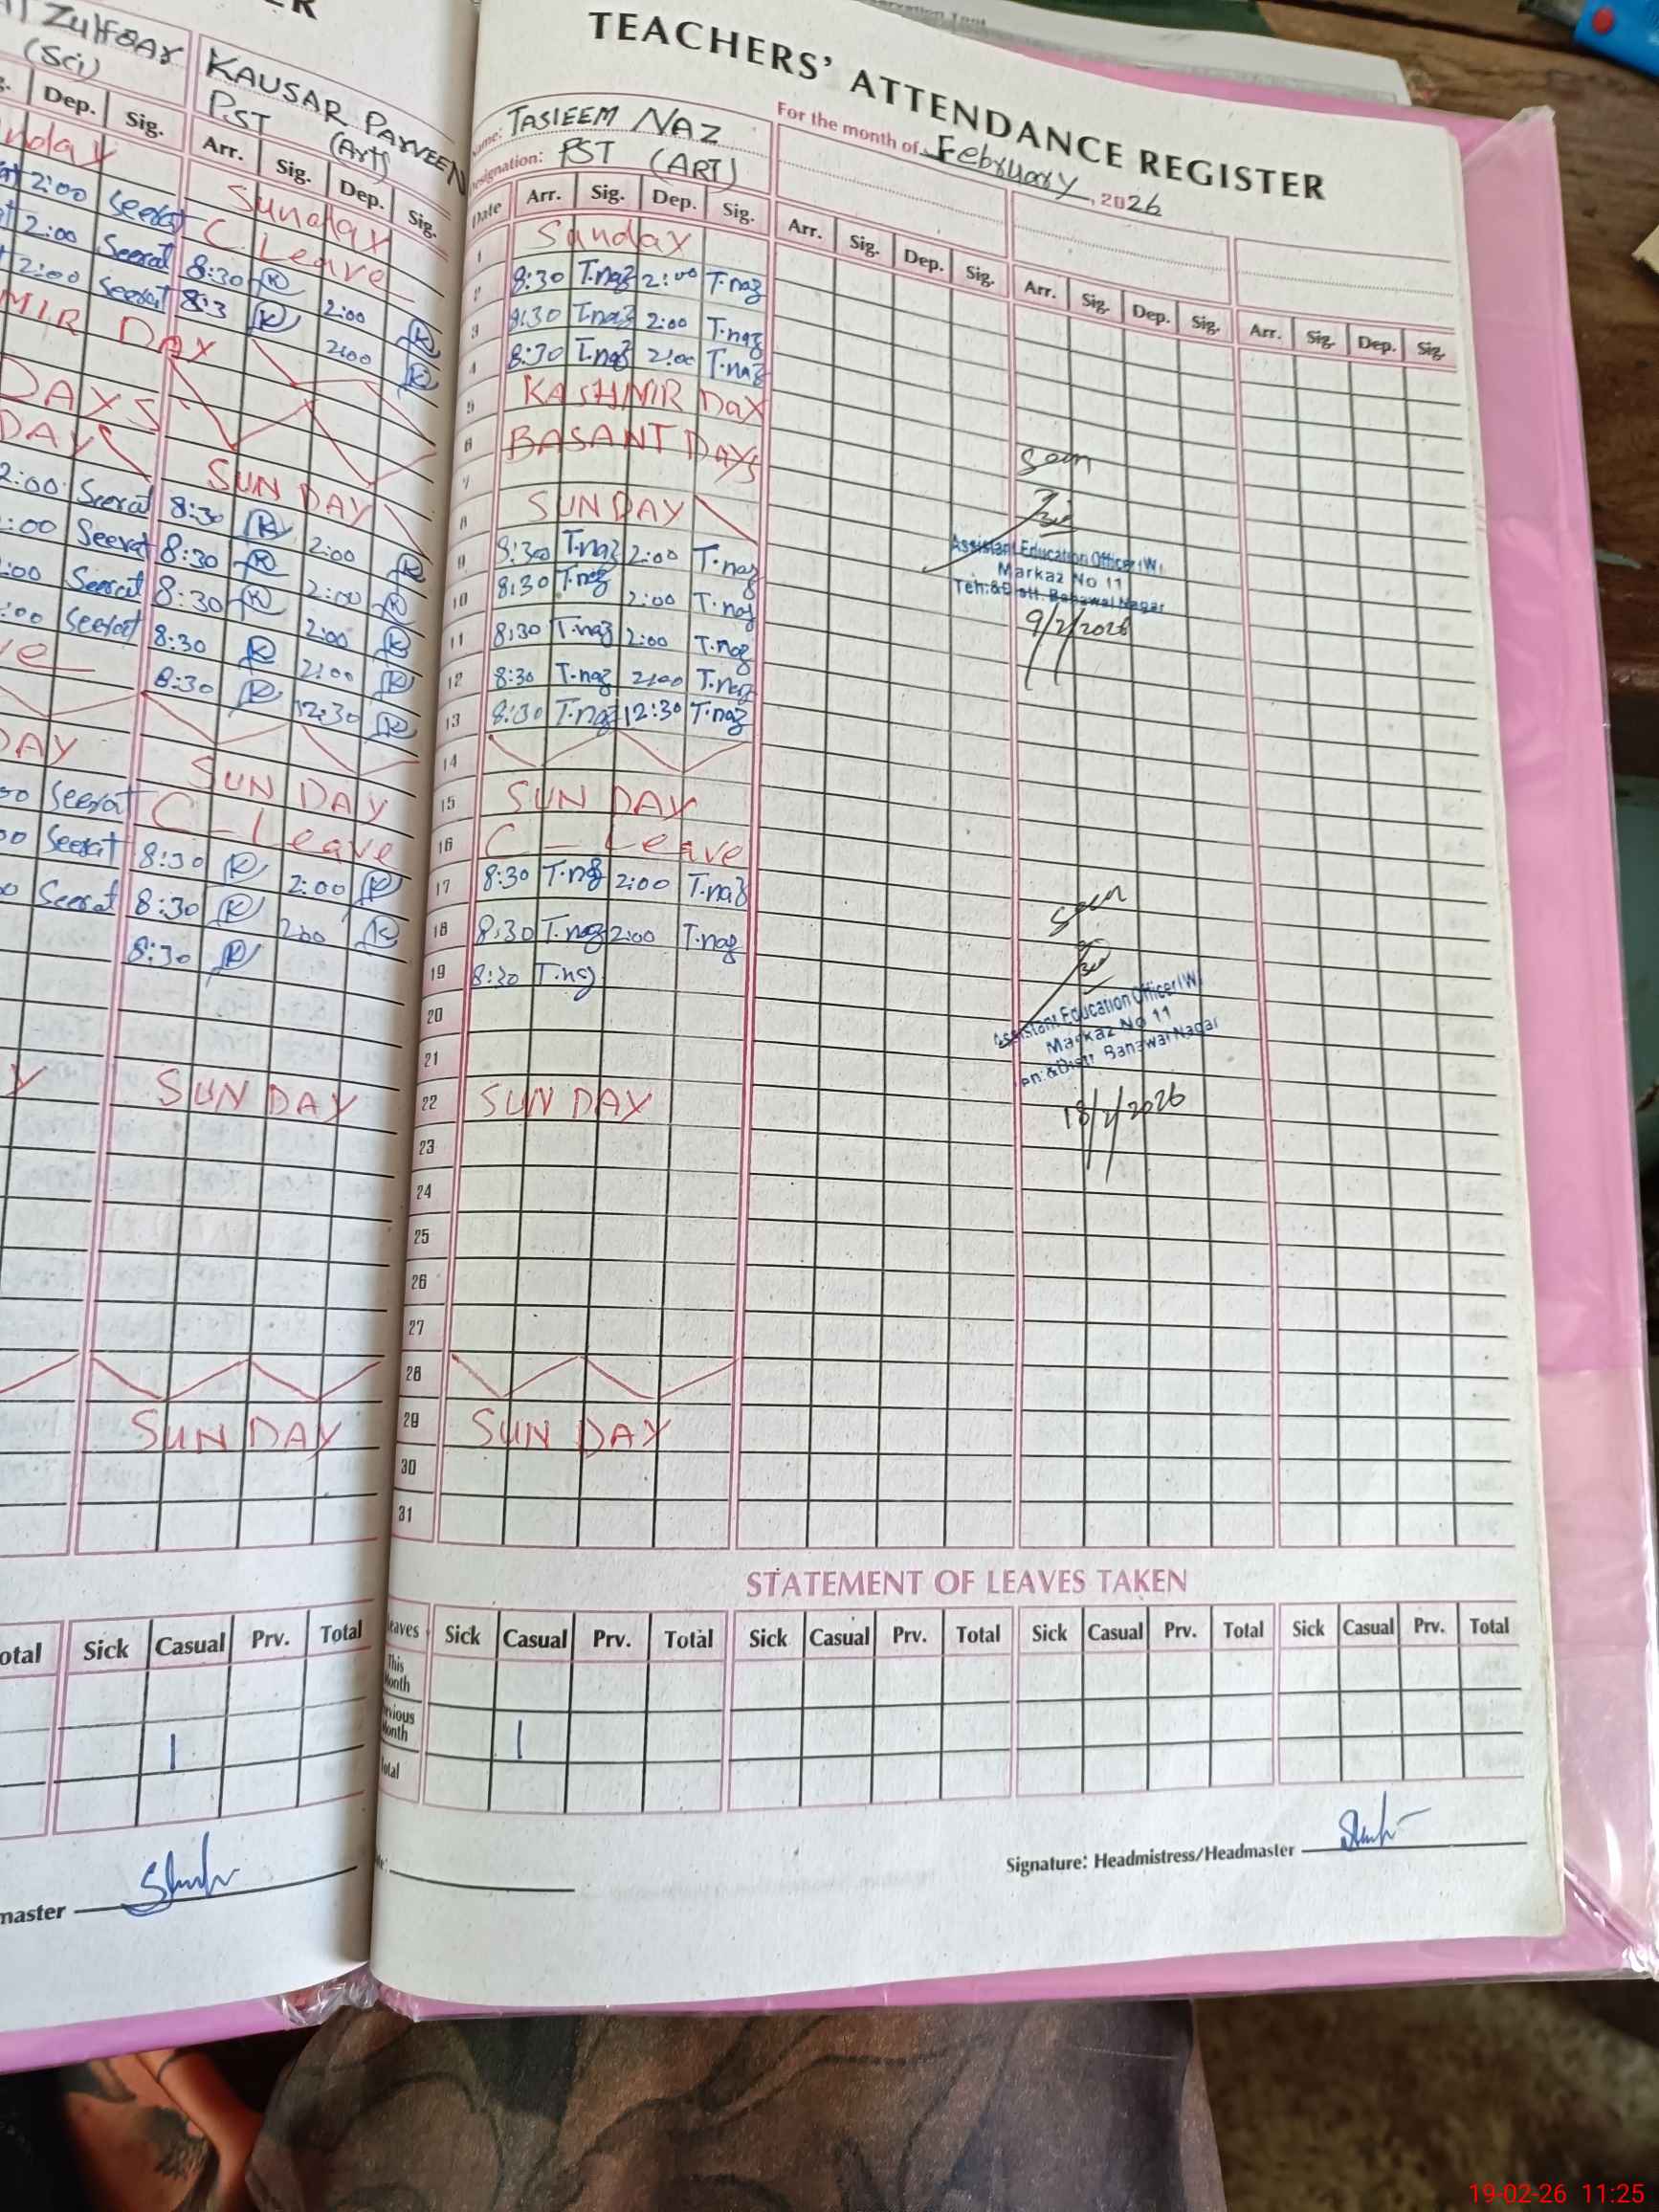 Zulfqar
(Sci)
Dep. Sig.
2:00 Seerat
2:00 Seerat
2:00 Seerat
MIR DAY
DAYS
DAY
2:00 Seerat
:00 Seerat
:00 Seerat
:00 Seerat
DAY
Seerat
Seerat
Seerat
KAUSAR PARVEEN
PST (Art)
Arr. Sig. Dep. Sig.
Sunday
C Leave
8:30 K 2:00 K
8:3 K 2:00 K
SUNDAY
8:30 K 2:00 K
8:30 K 2:00 K
8:30 K 2:00 K
8:30 K 2:00 K
8:30 K 12:30 K
SUNDAY
C-Leave
8:30 K 2:00 K
8:30 K 2:00 K
8:30 K
SUNDAY
SUNDAY
otal Sick Casual Prv. Total
1
master
TEACHERS' ATTENDANCE REGISTER
Name: TASLEEM NAZ
For the month of February, 2026
Designation: PST (ART)
Date Arr. Sig. Dep. Sig. Arr. Sig. Dep. Sig. Arr. Sig. Dep. Sig. Arr. Sig. Dep. Sig.
1 Sunday
2 8:30 T.naz 2:00 T.naz
3 8:30 T.naz 2:00 T.naz
4 8:30 T.naz 2:00 T.naz
5 KASHMIR DaY
6 BASANT DAYS
7
8 SUNDAY
9 8:30 T.naz 2:00 T.naz
10 8:30 T.naz 2:00 T.naz
11 8:30 T.naz 2:00 T.naz
12 8:30 T.naz 2:00 T.naz
13 8:30 T.naz 12:30 T.naz
14
15 SUNDAY
16 C - Leave
17 8:30 T.naz 2:00 T.naz
18 8:30 T.naz 2:00 T.naz
19 8:30 T.naz
20
21
22 SUNDAY
23
24
25
26
27
28
29 SUNDAY
30
31
Seen
Assistant Education Officer (W)
Markaz No 11
Teh:&Distt. Bahawal Nagar
9/2/2026
Seen
Assistant Education Officer (W)
Markaz No 11
en:&Distt. Bahawal Nagar
18/2/2026
STATEMENT OF LEAVES TAKEN
Leaves Sick Casual Prv. Total Sick Casual Prv. Total Sick Casual Prv. Total Sick Casual Prv. Total
This Month
Previous Month 1
Total
Signature: Headmistress/Headmaster
19-02-26 11:25